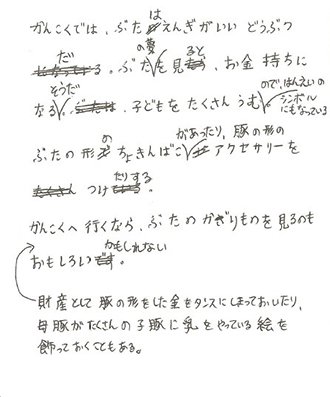 かんこくでは、ぶたはえんぎがいいどうぶつ
だ。ぶたの夢を見ると、お金持ちに
なるそうだ。子どもをたくさんうむので、はんえいの
シンボル
にもなっている
ぶたの形のちょきんばこがあったり、豚の形のアクセサリーを
つけたりする。
かんこくへ行くなら、ぶたのかざりものを見るのも
おもしろいかもしれない。
財産として豚の形をした金をタンスにしまっておいたり、
母豚がたくさんの子豚に乳をやっている絵を
飾っておくこともある。